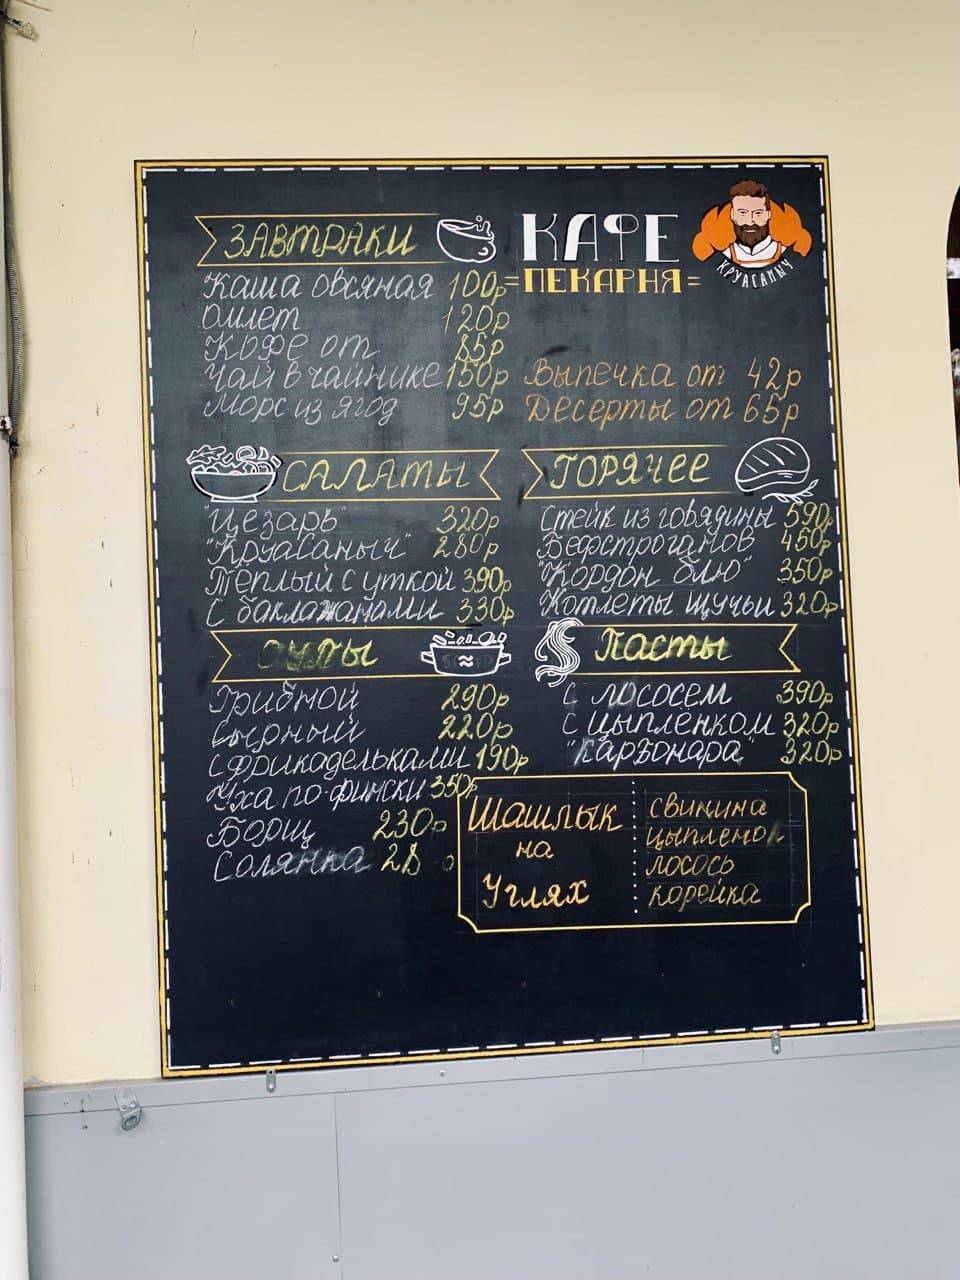 КАФЕ
=ПЕКАРНЯ=
КРУАСАНЫЧ
ЗАВТРАКИ
Каша овсяная 100р
Омлет 120р
Кофе от 85р
Чай в чайнике 150р
Морс из ягод 95р
Выпечка от 42р
Десерты от 65р
САЛАТЫ
"Цезарь" 320р
"Круасаныч" 280р
Тёплый с уткой 390р
С баклажанами 330р
ГОРЯЧЕЕ
Стейк из говядины 590р
Бефстроганов 450р
"Кордон блю" 350р
Котлеты щучьи 320р
Супы
Грибной 290р
Сырный 220р
С фрикадельками 190р
Уха по-фински 350р
Борщ 230р
Солянка 28
Пасты
С лососем 390р
С цыпленком 320р
"Карбонара" 320р
Шашлык
на
Углях
свинина
цыпленок
лосось
корейка